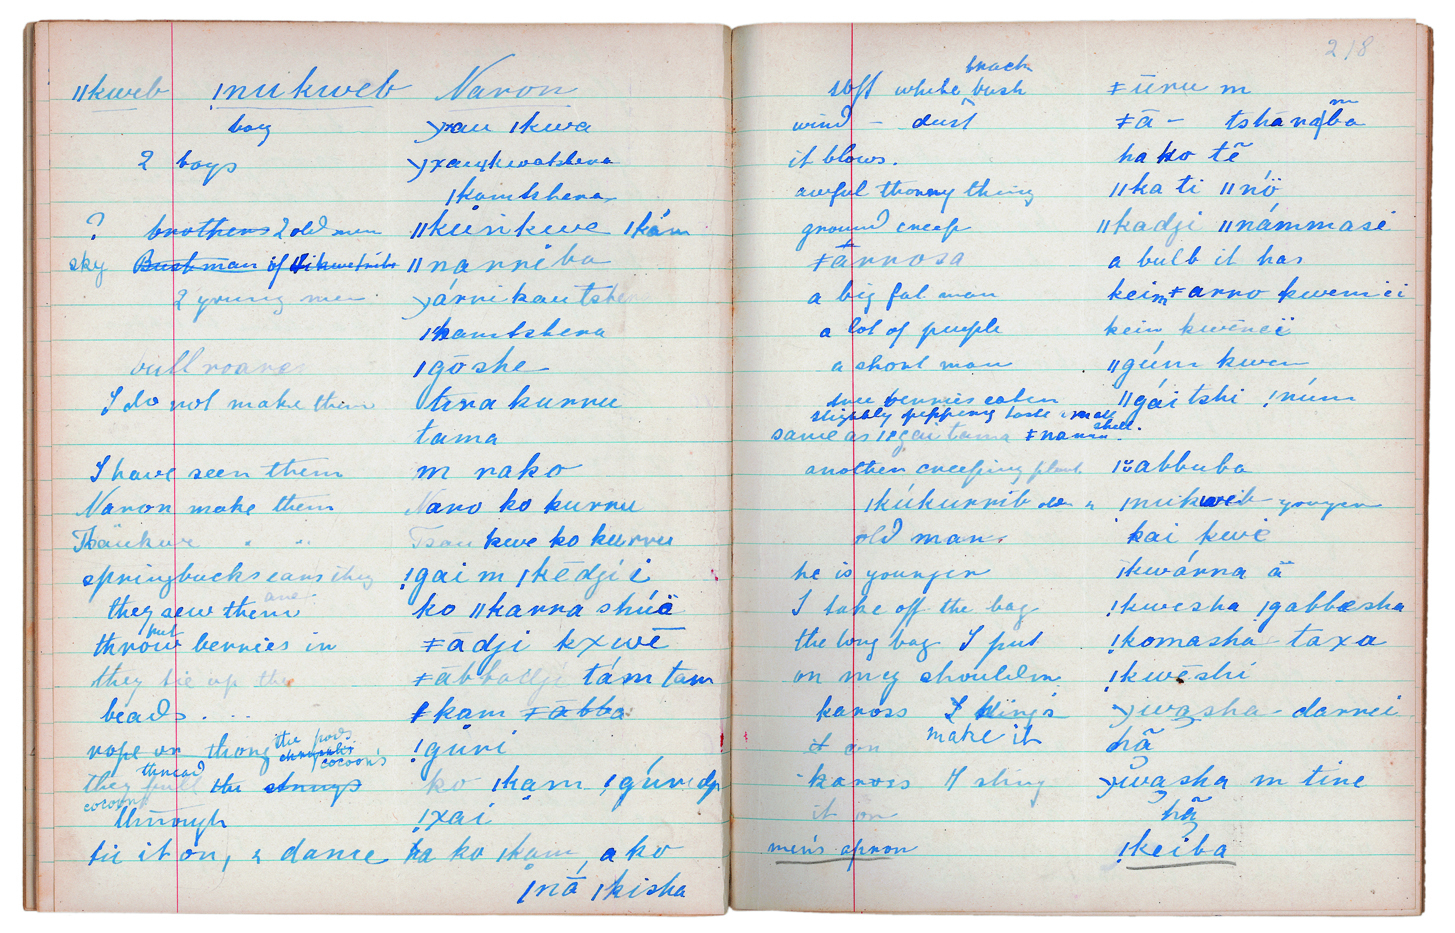 ǁkweb ǃnukweb Naron
boy ⟩xau ǀkwa
2 boys ⟩xauǀkwatshera
ǀkamtshera
? brothers 2 old men ǁkúrikwe ǀkám
sky Bushman of ǁikwetribe ǁnarriba
2 young men ⟩árnikautshe
ǀkamtshera
bull roarer ǀgōshe
I do not make them tira kurru
tama
I have seen them m rako
Naron make them Naro ko kurru
Tsaukwe " " Tsaukwe ko kurru
springbucks ears they ǃgai m ǀkēdji i
are
they sew them ko ǁkarra shúä
put
throw berries in ǂādji kxwē
they tie up the ǂābbadji tám tam
beads . . . ǂkam ǂābba
rope or thong the pods ǃgúri
chrysalis cocoon's
thread
they pull the strings ko ǀkam ǃgúridji
cocoons
through ǃxai
tie it on, & dance ha ko ǀkam, a ko
ǀnā ǀkisha
218
brach
soft white bush ǂūru m
wind - dust ǂā - tsharaba
m
it blows. ha ko tē
awful thorny thing ǁka ti ǁnö
ground creep ǁkadji ǁnámmasi
ǂārrosa a bulb it has
a big fat man keim ǂarro kwem ei
a lot of people kein kwēneë
a short man ǁgúm kwen
tree berries eaten ǁgái tshi ǃnúm
slightly peppery taste small
shell.
same as gai tama ǂnamu
another creeping plant abbuba
ǀkúkurrib older & ǀnukweib younger
old man kai kwe
he is younger ǀkwárna ä
I take off the bag ǃkwesha ǀgabbesha
the long bag I put ǃkomasha taxa
on my shoulder ǃkwēshi
kaross I ⟩washa darrei
make it
it on hã
kaross I sling ⟩washa m tine
it on hã
men's apron ǃkeiba